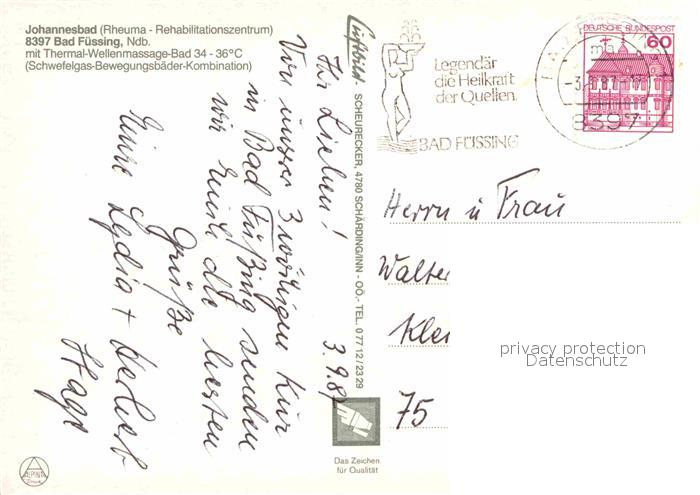 Johannesbad (Rheuma - Rehabilitationszentrum)
8397 Bad Füssing, Ndb.
mit Thermal-Wellenmassage-Bad 34 - 36°C
(Schwefelgas-Bewegungsbäder-Kombination)
3.9.87
Ihr Lieben!
Von unserer 3 wöchigen Kur
in Bad Füßing senden
wir Euch die besten
Grüße
Eure Lydia + Herbert
Luftbild SCHEURECKER, 4780 SCHÄRDING/INN - OÖ.- TEL. 0 77 12 / 23 29
Das Zeichen
für Qualität
ALPINA
Legendär
die Heilkraft
der Quellen.
BAD FÜSSING
8397
DEUTSCHE BUNDESPOST
60
Herrn u Frau
Walter
Klei
75
privacy protection
Datenschutz